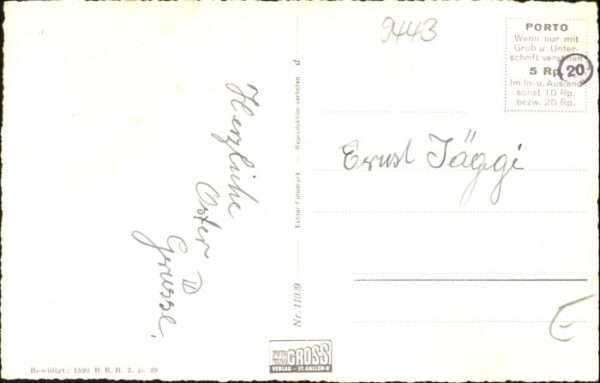 9443
PORTO
Wenn nur mit
Gruß u. Unter-
schrift versehen
5 Rp.
20
Im In- u. Ausland
sonst 10 Rp.
bezw. 20 Rp.
Herzliche
Oster
Grüsse,
Ernst Jäggi
Reproduktion verboten
Nr. 11019
GROSS
VERLAG - ST. GALLEN
Bewilligt: 1599 B. R. B. 3. 10. 39